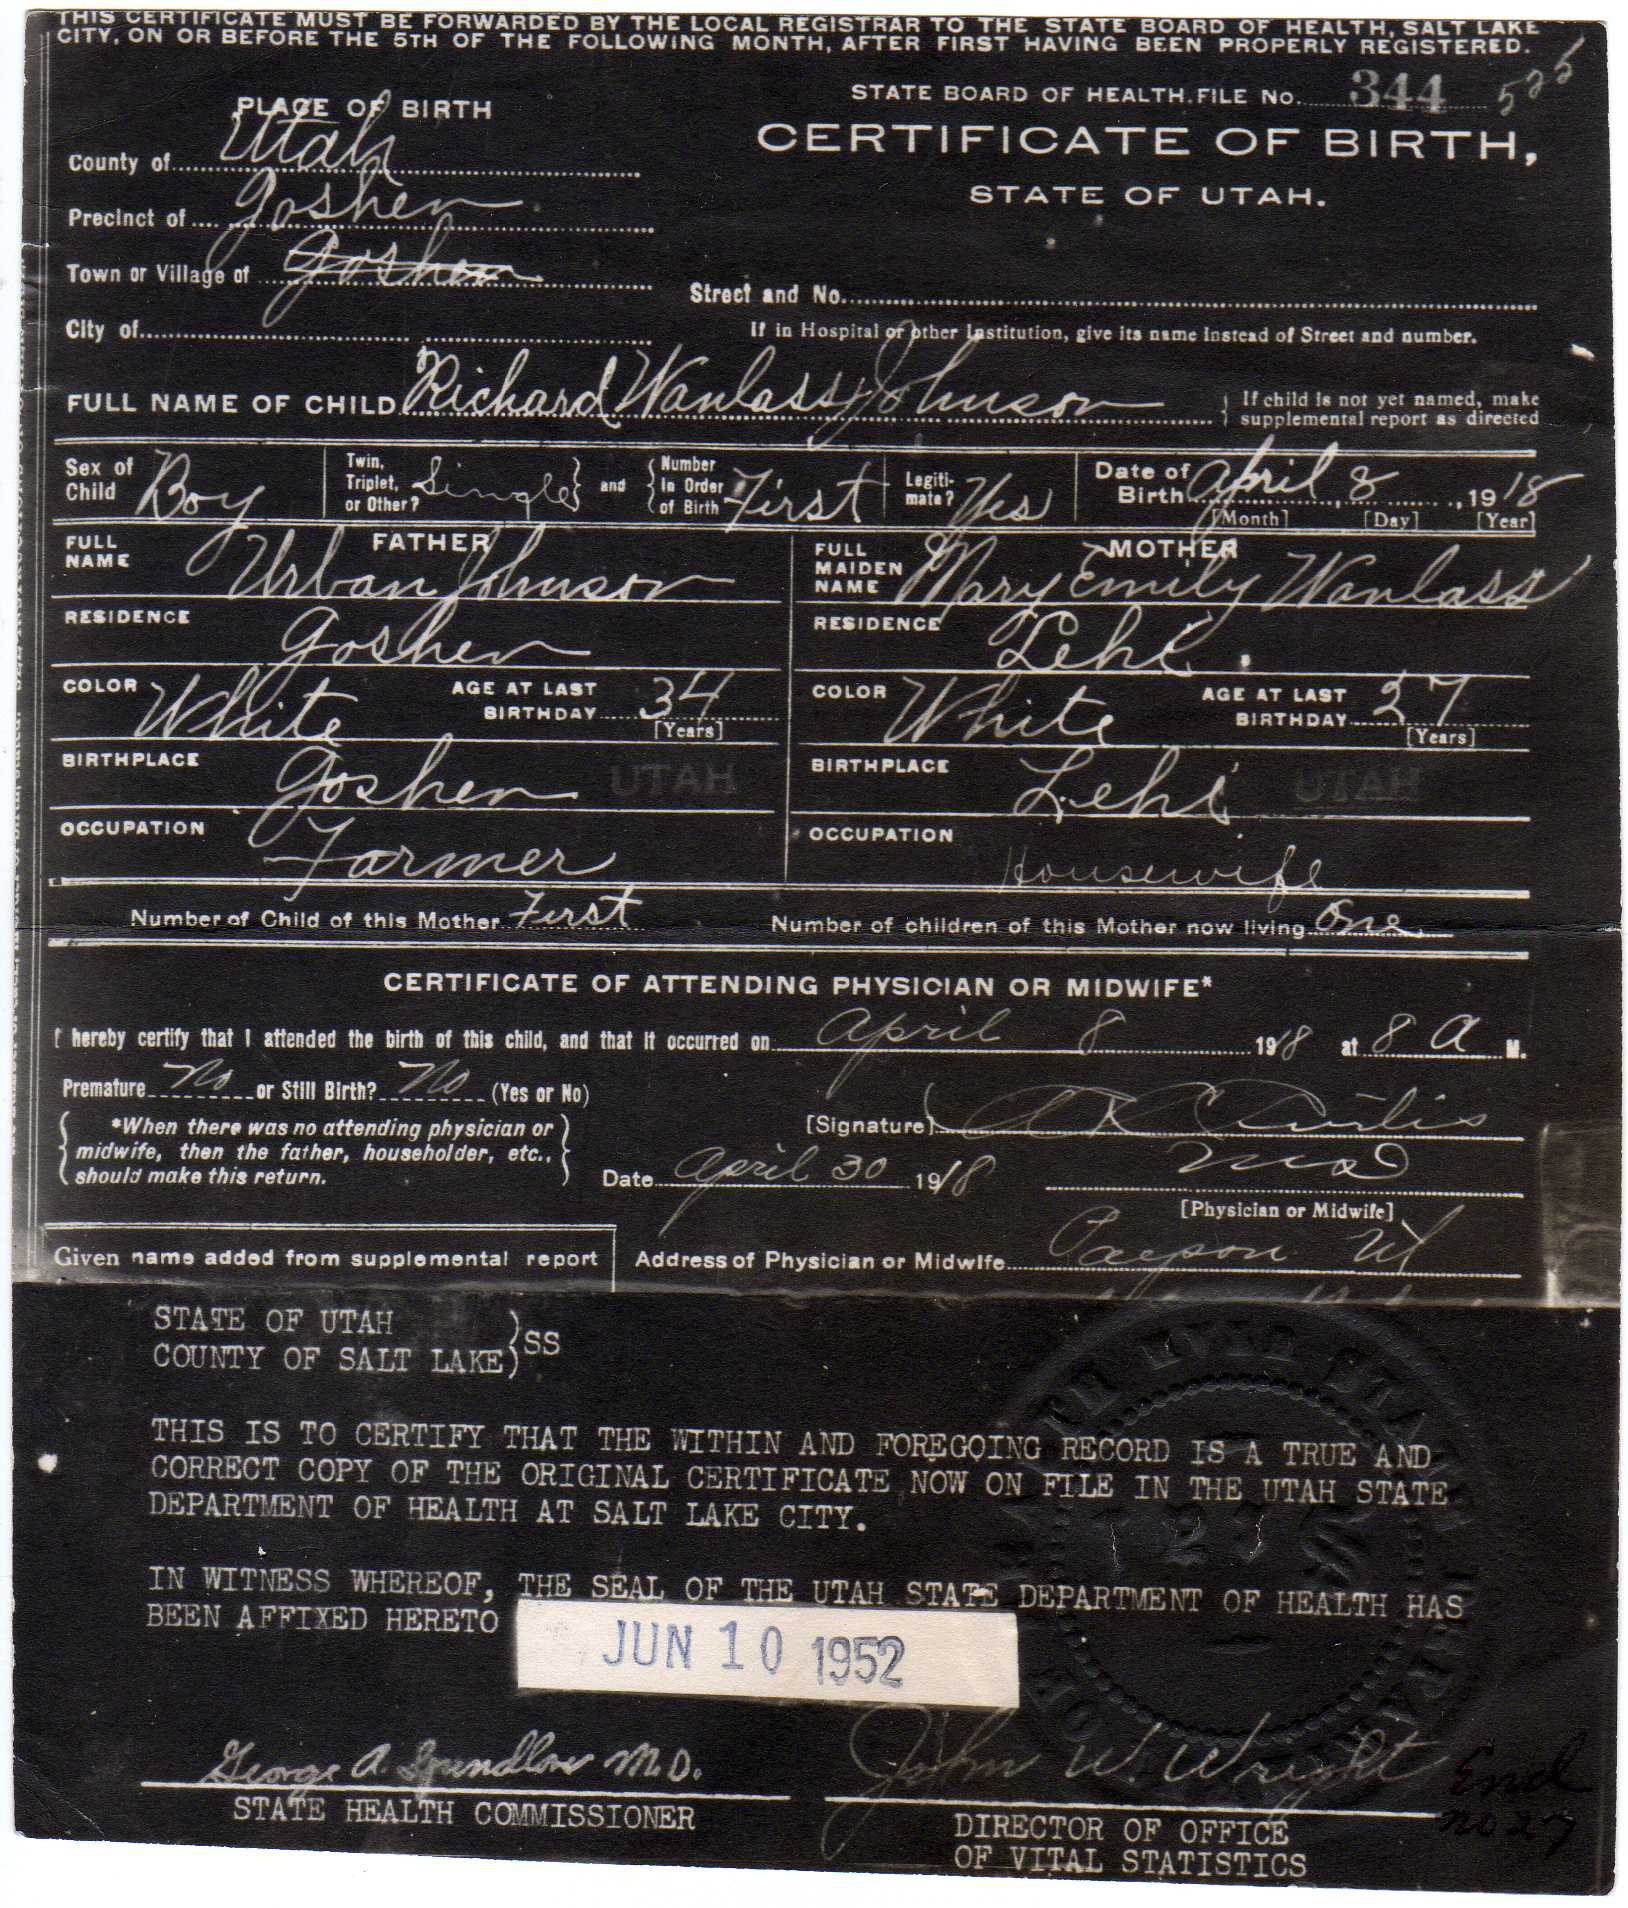 THIS CERTIFICATE MUST BE FORWARDED BY THE LOCAL REGISTRAR TO THE STATE BOARD OF HEALTH, SALT LAKE
CITY, ON OR BEFORE THE 5TH OF THE FOLLOWING MONTH, AFTER FIRST HAVING BEEN PROPERLY REGISTERED.
STATE BOARD OF HEALTH. FILE No. 344 525
PLACE OF BIRTH
CERTIFICATE OF BIRTH,
STATE OF UTAH.
County of Utah
Precinct of Goshen
Town or Village of Goshen
Street and No.
City of
If in Hospital or other Institution, give its name Instead of Street and number.
FULL NAME OF CHILD Richard Wanlass Johnson
If child is not yet named, make
supplemental report as directed
Sex of Child Boy
Twin, Triplet, or Other? Single and Number In Order of Birth First
Legiti-mate? Yes
Date of Birth April 8, 1918
[Month] [Day] [Year]
FATHER
FULL NAME Urban Johnson
RESIDENCE Goshen
COLOR White AGE AT LAST BIRTHDAY 34
[Years]
BIRTHPLACE Goshen UTAH
OCCUPATION Farmer
MOTHER
FULL MAIDEN NAME Mary Emily Wanlass
RESIDENCE Lehi.
COLOR White AGE AT LAST BIRTHDAY 27
[Years]
BIRTHPLACE Lehi UTAH
OCCUPATION Housewife
Number of Child of this Mother First Number of children of this Mother now living One
CERTIFICATE OF ATTENDING PHYSICIAN OR MIDWIFE*
I hereby certify that I attended the birth of this child, and that it occurred on April 8 1918 at 8 A M.
Premature No or Still Birth? No (Yes or No)
*When there was no attending physician or
midwife, then the father, householder, etc.,
should make this return.
[Signature] A K C Curtis
MD
[Physician or Midwife]
Date April 30 1918
Given name added from supplemental report
Address of Physician or Midwife Payson Ut
STATE OF UTAH
COUNTY OF SALT LAKE) SS
THIS IS TO CERTIFY THAT THE WITHIN AND FOREGOING RECORD IS A TRUE AND
CORRECT COPY OF THE ORIGINAL CERTIFICATE NOW ON FILE IN THE UTAH STATE
DEPARTMENT OF HEALTH AT SALT LAKE CITY.
IN WITNESS WHEREOF, THE SEAL OF THE UTAH STATE DEPARTMENT OF HEALTH HAS
BEEN AFFIXED HERETO JUN 10 1952
George A. Spendlove M.D.
STATE HEALTH COMMISSIONER
John W. Wright
DIRECTOR OF OFFICE
OF VITAL STATISTICS
Encl
no 27